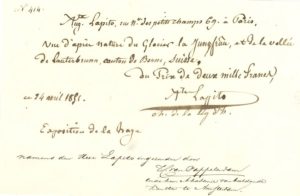 N. 414.
Aug. Lapito, rue N.ve des petits champs 69. à Paris,
vue d'après nature du Glacier la Jungfrau, et de la vallée
de Lauterbrunn, canton de Berne, Suisse,
du Prix de deux mille francs,
ce 24 août 1851.
Aug.te Lapito
ch. de la Lég. d'h.
Exposition de la Haye
namens den Heer Lapito ingezonden door